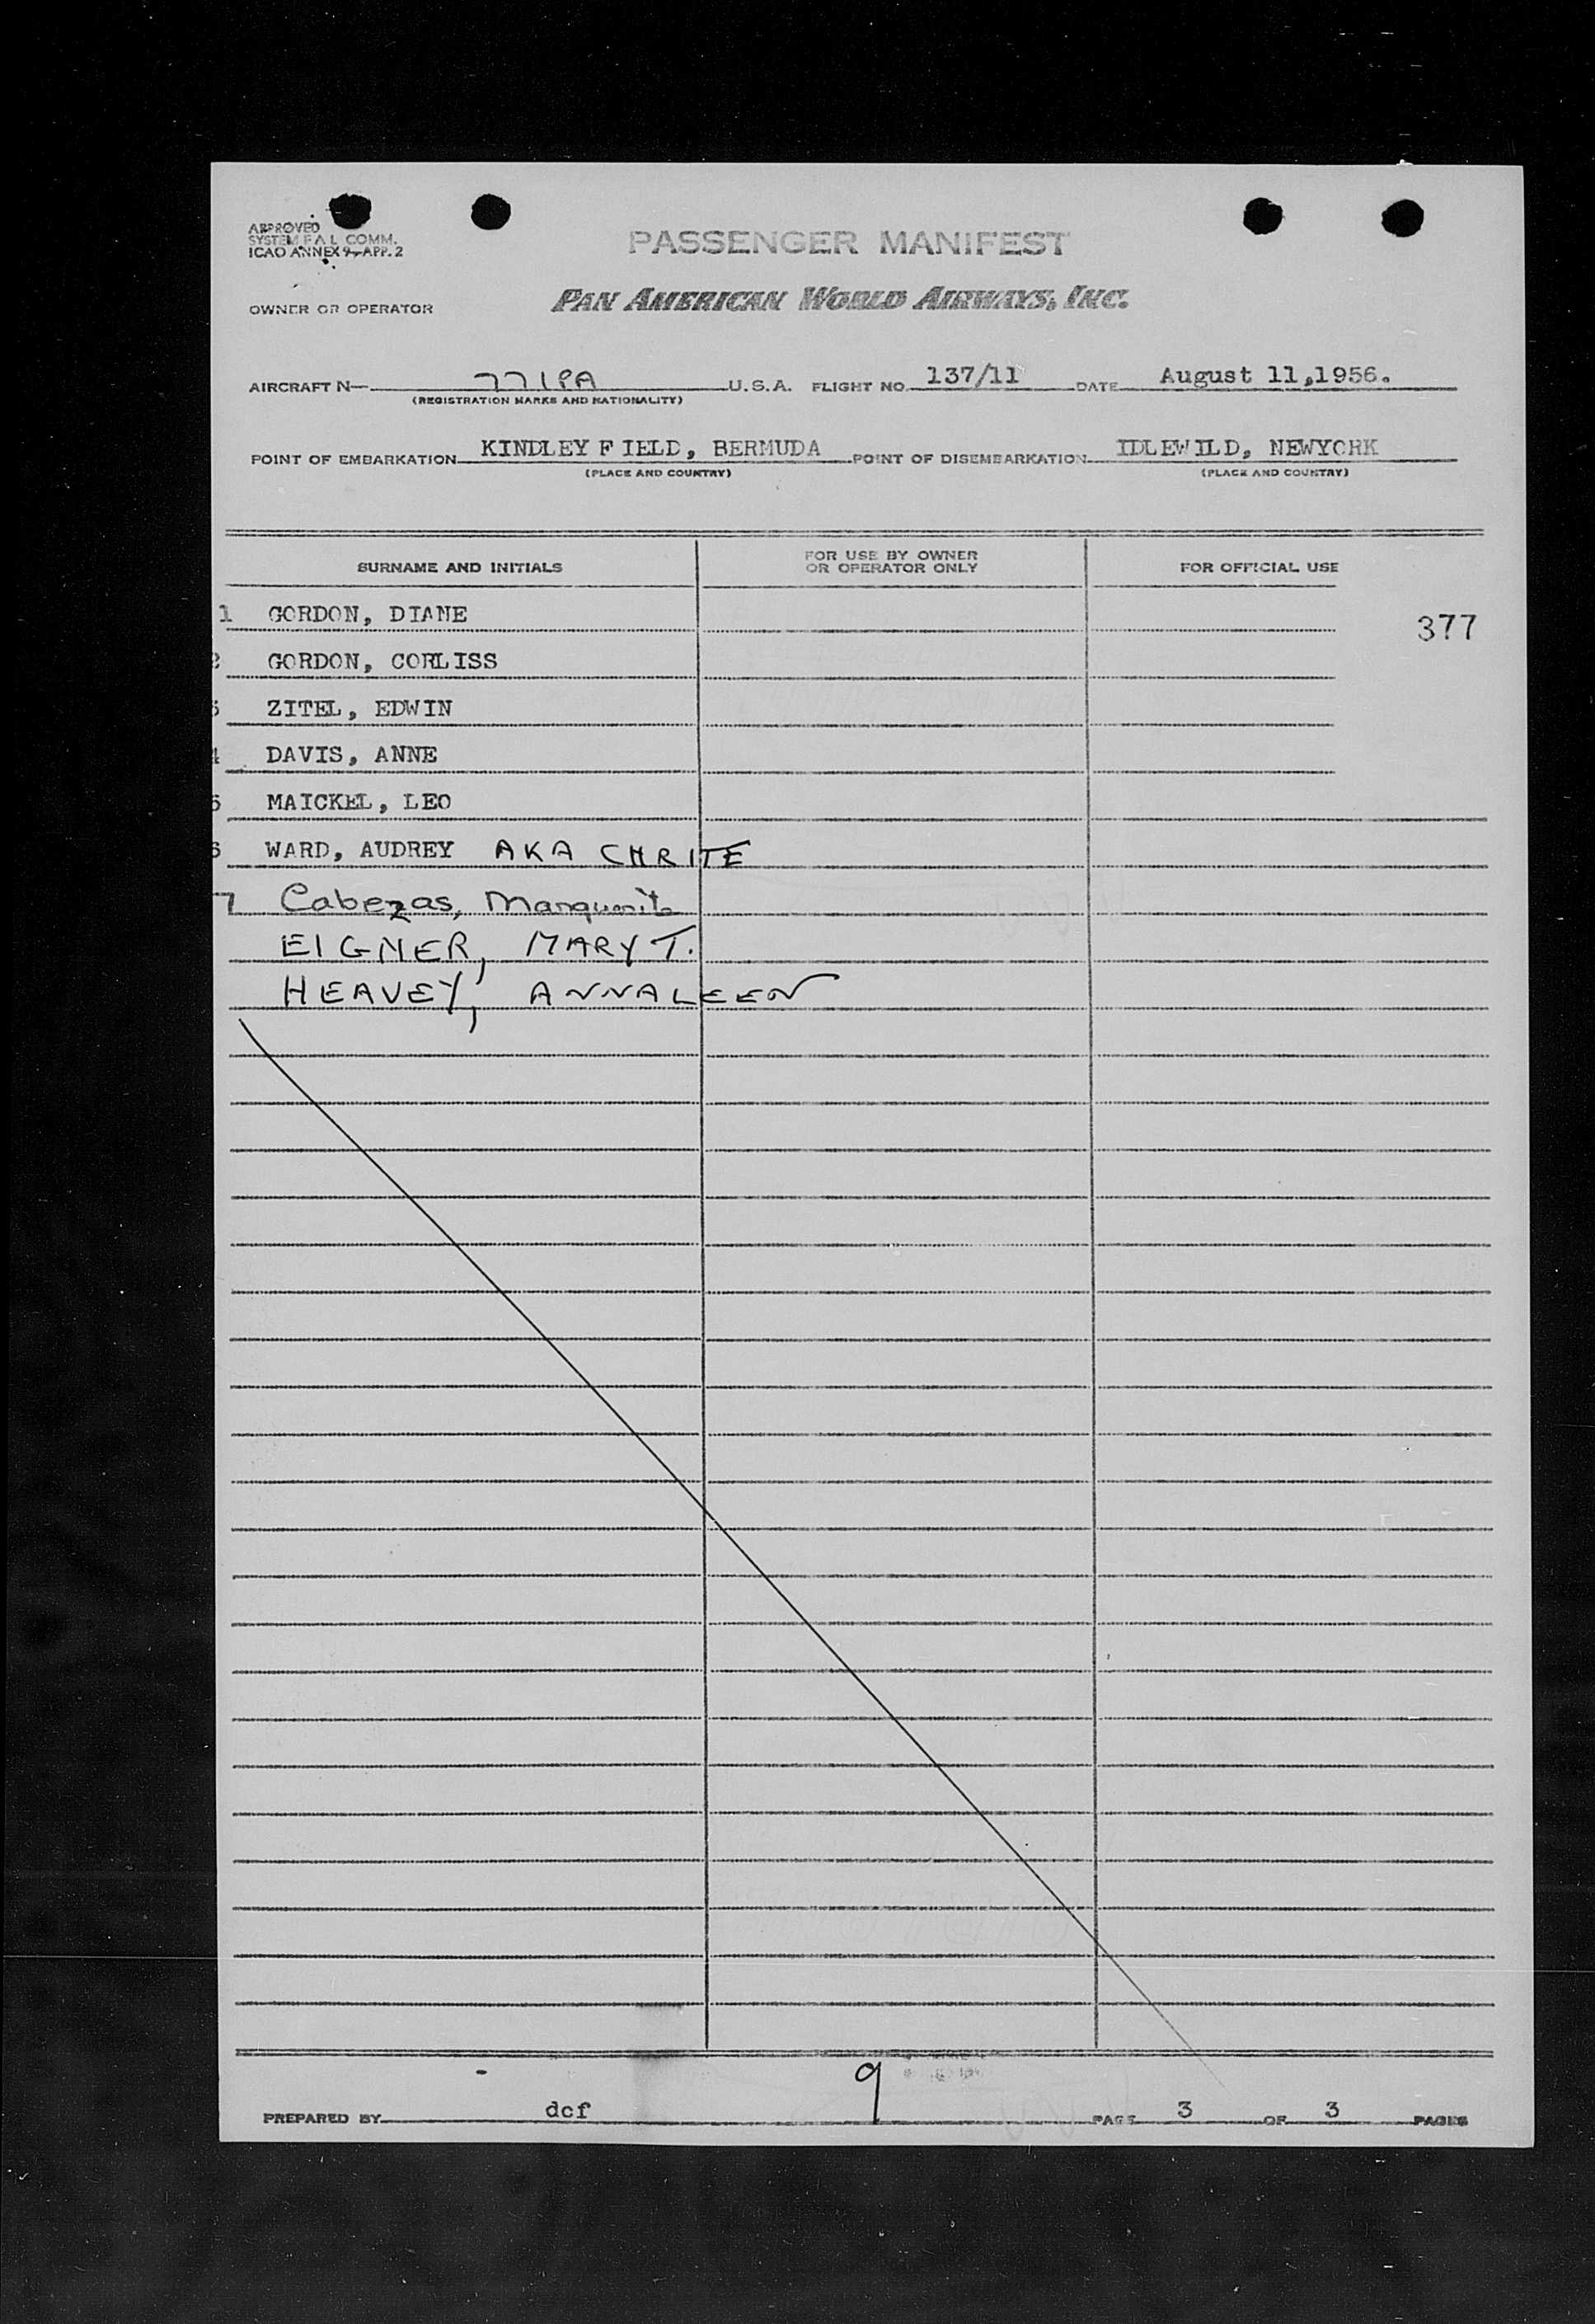 APPROVED
SYSTEM F A L COMM.
ICAO ANNEX 9—APP. 2
PASSENGER MANIFEST
OWNER OR OPERATOR PAN AMERICAN WORLD AIRWAYS, INC.
AIRCRAFT N— 771PA U.S.A. FLIGHT NO. 137/11 DATE August 11,1956.
(REGISTRATION MARKS AND NATIONALITY)
POINT OF EMBARKATION KINDLEY FIELD, BERMUDA POINT OF DISEMBARKATION IDLEWILD, NEWYORK
(PLACE AND COUNTRY) (PLACE AND COUNTRY)
SURNAME AND INITIALS FOR USE BY OWNER OR OPERATOR ONLY FOR OFFICIAL USE
1 GORDON, DIANE
377
2 GORDON, CORLISS
3 ZITEL, EDWIN
4 DAVIS, ANNE
5 MAICKEL, LEO
6 WARD, AUDREY AKA CHRITE
7 Cabezas,
EIGNER, MARY T.
HEAVEY, ANNALEEN
9
PREPARED BY dcf PAGE 3 OF 3 PAGES